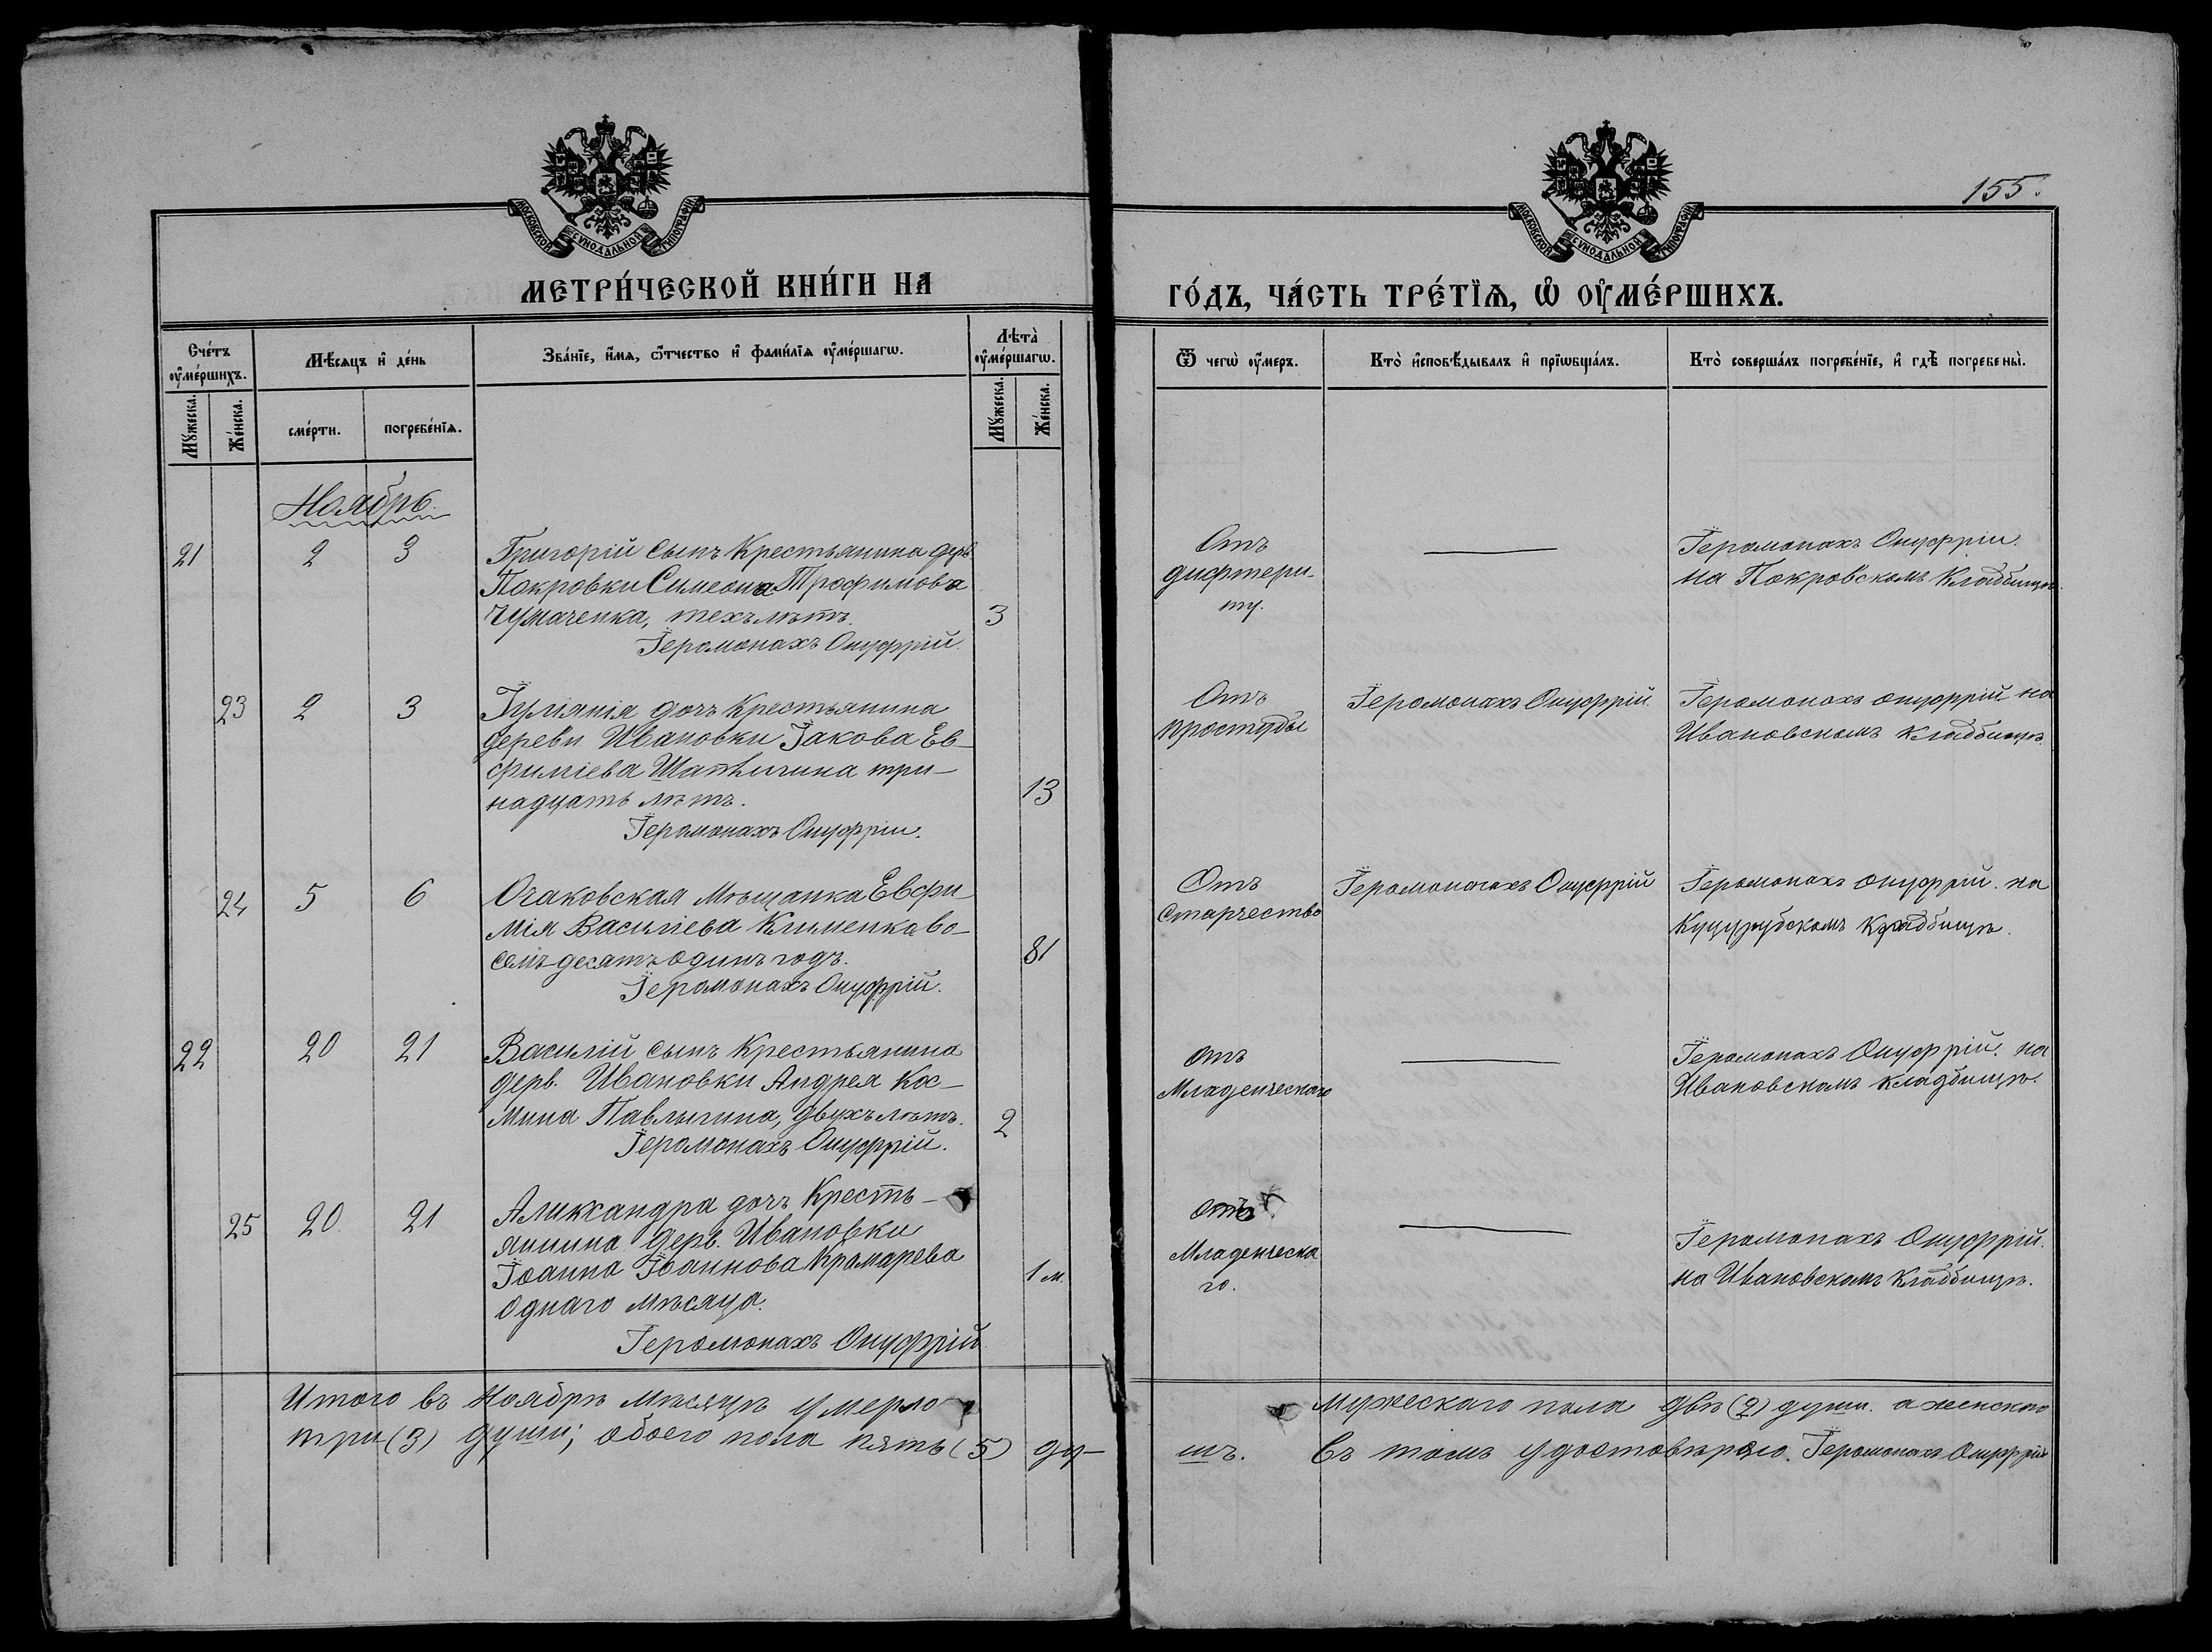 155.
МОСКОВСКОЙ СУНОДАЛЬНОЙ ТИПОГРАФІИ
МОСКОВСКОЙ СУНОДАЛЬНОЙ ТИПОГРАФІИ
МЕТРИ́ЧЕСКОЙ КНИ́ГИ НА
ГО́ДЪ, ЧА́СТЬ ТРЕ́ТЇѦ, Ѽ ОУ҆МЕ́РШИХЪ.
Сче́тъ оу҆ме́ршихъ.
Мѣ́сяцъ и҆ де́нь
Зва́нїе, и҆́мѧ, ѻ҆́тчество и҆ фами́лїѧ оу҆ме́ршагѡ.
Лѣта̀ оу҆ме́ршагѡ.
Ѿ чегѡ̀ оу҆́меръ.
Кто̀ и҆сповѣ́дывалъ и҆ прїѡбща́лъ.
Кто̀ соверша́лъ погребе́нїе, и҆ гдѣ̀ погребены̀.
Мꙋжеска.
Же́нска.
сме́рти.
погребе́нїѧ.
Мꙋжеска.
Же́нска.
Ноябрь.
21 2 3 Григорій сынъ Крестьянина дерв.
Покровки Симеона Трофимова
Чумаченка, техъ лѣтъ. 3
Іеромонахъ Онуфрій.
Отъ
дифтери-
ту.
Іеромонахъ Онуфрій.
на Покровскомъ Кладбищѣ.
23 2 3 Іуліанія дочь Крестьянина
деревн Ивановки Іакова Ев-
фиміева три-
надцать лѣтъ. 13
Іеромонахъ Онуфрій.
Отъ
простуды
Іеромонахъ Онуфрій.
Іеромонахъ Онуфрій на
Ивановскомъ Кладбищѣ.
24 5 6 Очаковская Мѣщанка Евфи
мія Василіева Клименка во-
семь десятъ одинъ годъ. 81
Іеромонахъ Онуфрій.
Отъ
Старчество
Іеромонахъ Онуфрій
Іеромонахъ Онуфрій. на
Куцурубскомъ Кладбищѣ.
22 20 21 Василій сынъ Крестьянина
дерв. Ивановки Андрея Кос-
мина Павлычина, двухъ лѣтъ. 2
Іеромонахъ Онуфрій.
отъ
Младенческаго
Іеромонахъ Онуфрій. на
Ивановскомъ Кладбищѣ.
25 20 21 дочь Кресть-
янина дерв. Ивановки
Іоанна Іоаннова Крамарева 1 м.
однаго мѣсяца.
Іеромонахъ Онуфрій
отъ
Младенческа
го.
Іеромонахъ Онуфрій.
на Ивановскомъ Кладбищѣ.
Итого въ Ноябрѣ мѣсяцѣ умерло мужескаго пола двѣ (2) души. а женскаго
три (3) души; обоего пола пять (5) ду-
шъ. Въ томъ удостовѣряю. Іеромонахъ Онуфрій